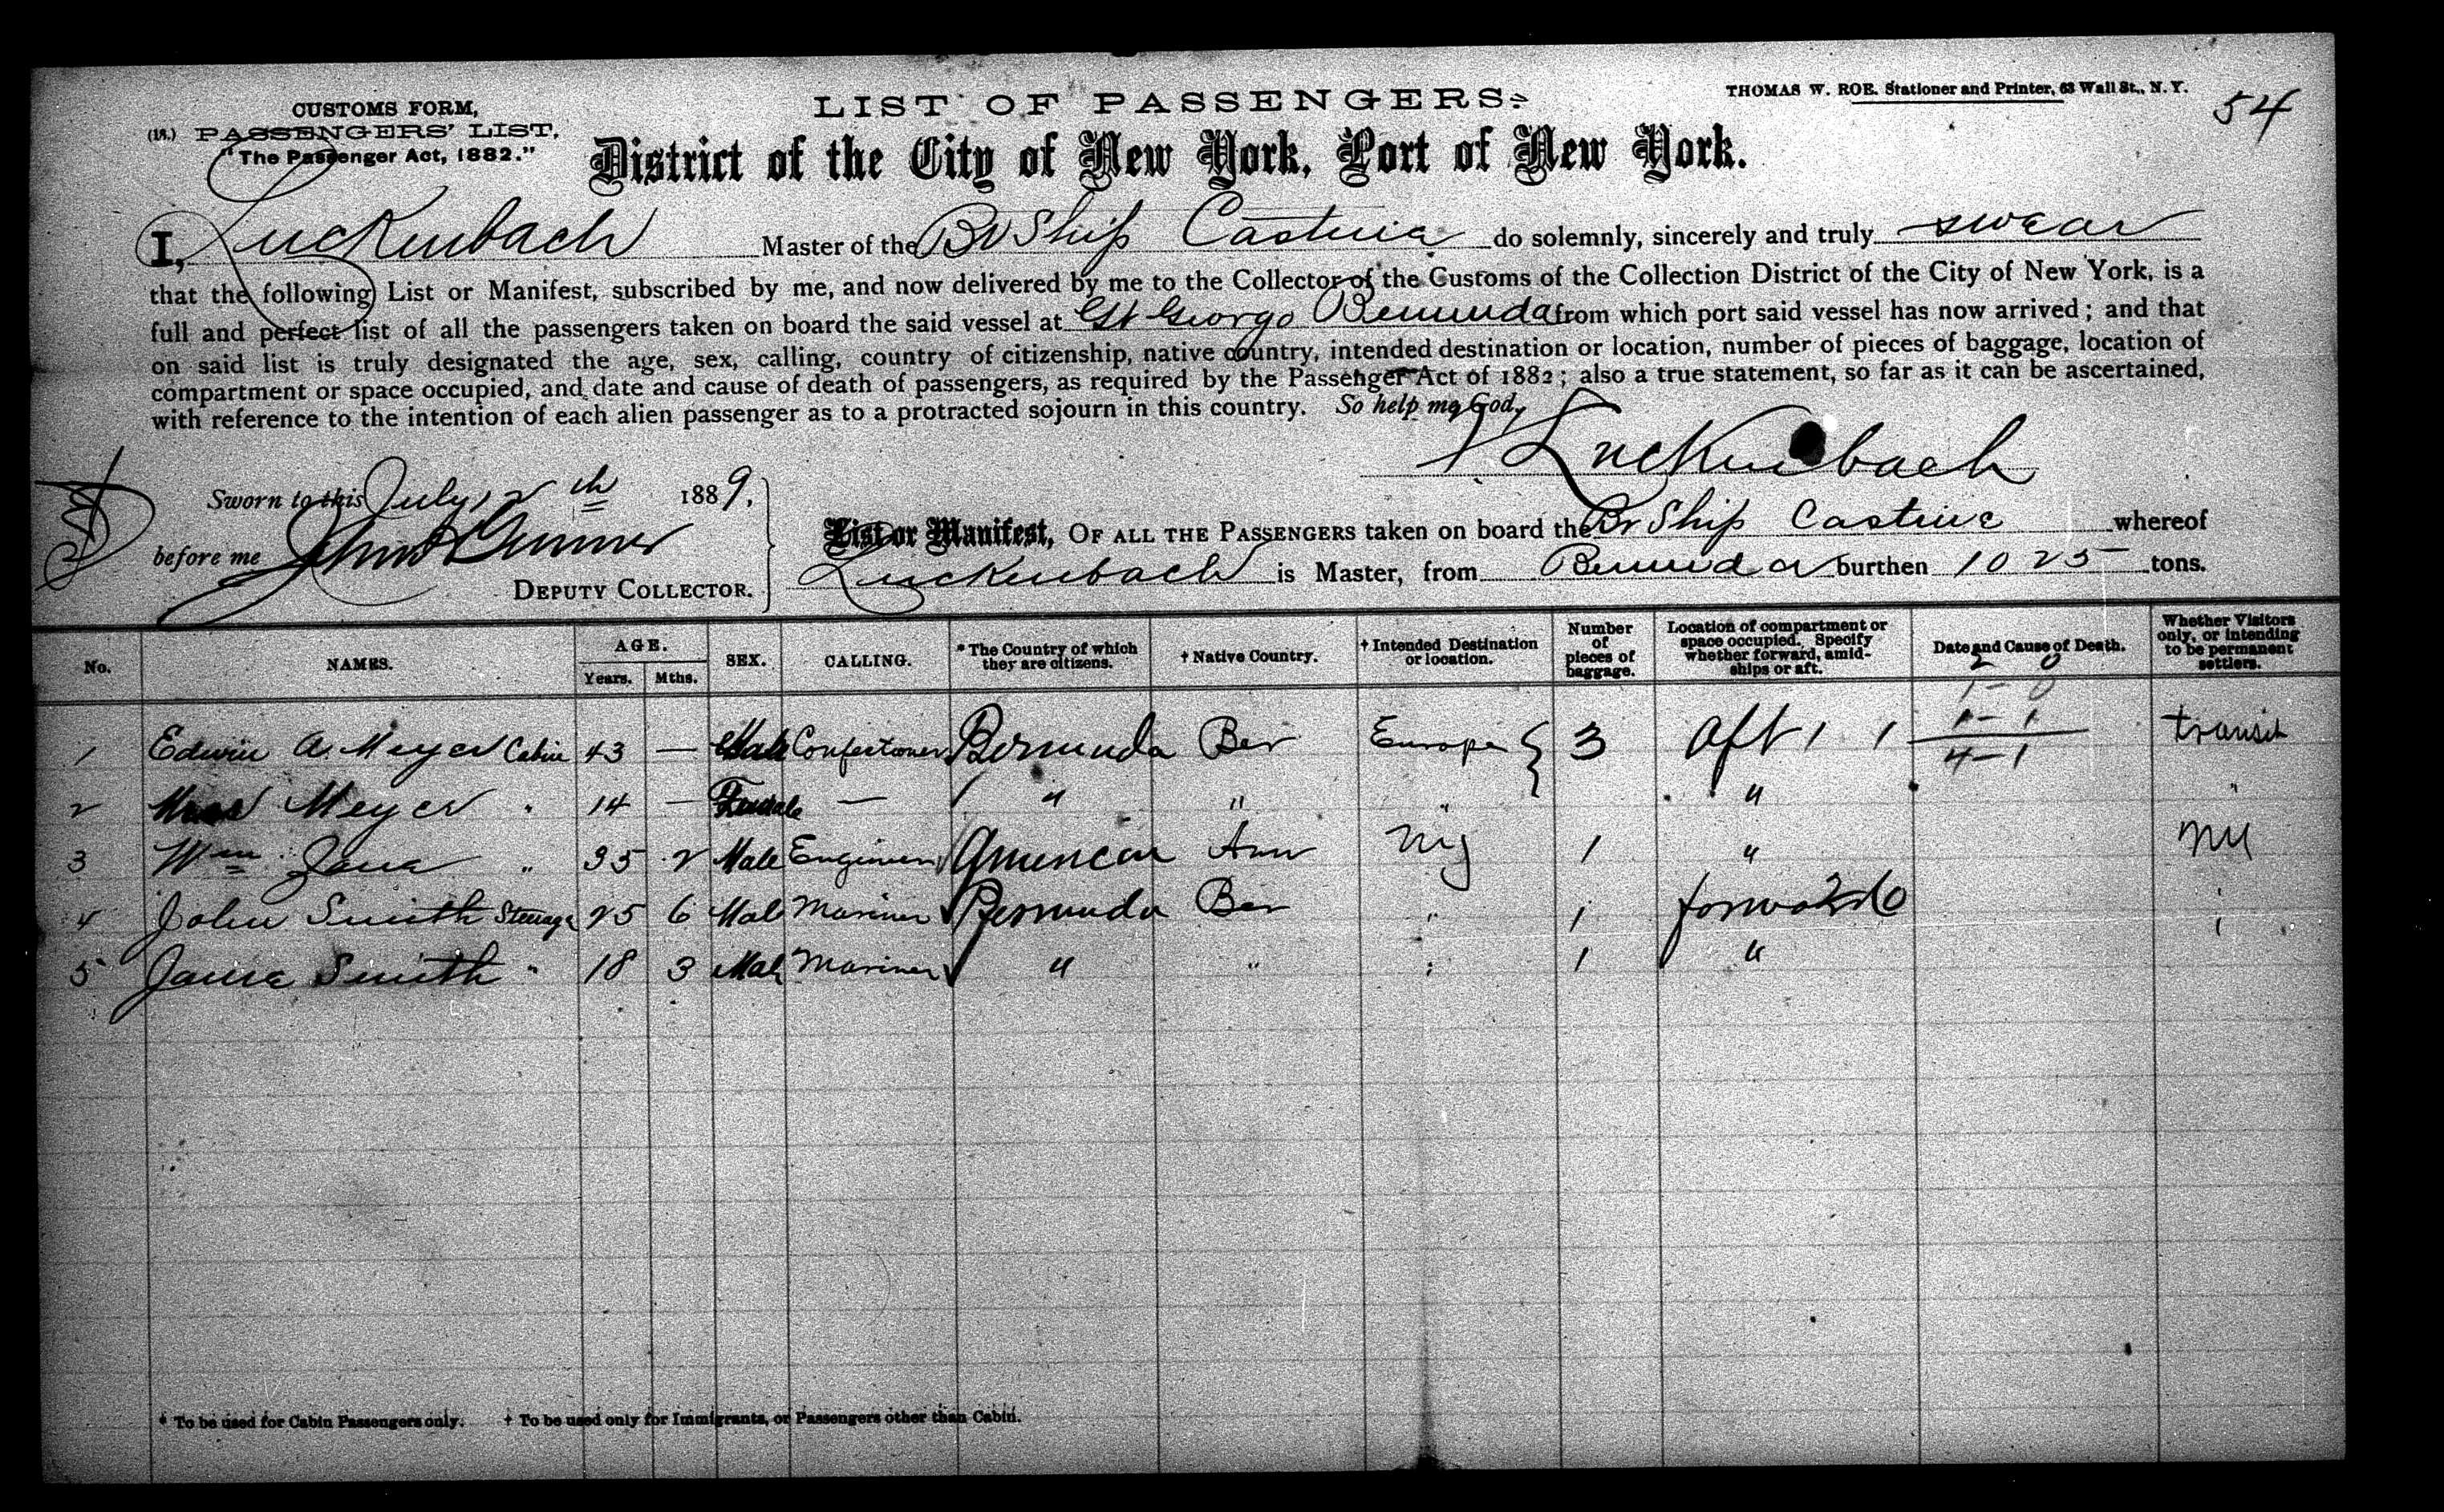 CUSTOMS FORM,
(18.) PASSENGERS' LIST,
"The Passenger Act, 1882."
LIST OF PASSENGERS.
THOMAS W. ROE. Stationer and Printer, 63 Wall St., N. Y.
54
District of the City of New York, Port of New York.
I, Luckenbach Master of the Br Ship Castine do solemnly, sincerely and truly swear
that the following List or Manifest, subscribed by me, and now delivered by me to the Collector of the Customs of the Collection District of the City of New York, is a
full and perfect list of all the passengers taken on board the said vessel at St George Bermuda from which port said vessel has now arrived; and that
on said list is truly designated the age, sex, calling, country of citizenship, native country, intended destination or location, number of pieces of baggage, location of
compartment or space occupied, and date and cause of death of passengers, as required by the Passenger Act of 1882; also a true statement, so far as it can be ascertained,
with reference to the intention of each alien passenger as to a protracted sojourn in this country. So help me God,
Luckenbach
Sworn to this July 12th 1889.
before me
DEPUTY COLLECTOR.
List or Manifest, OF ALL THE PASSENGERS taken on board the Br Ship Castine whereof
Luckenbach is Master, from Bermuda burthen 1025 tons.
No. NAMES. AGE. Years. Mths. SEX. CALLING. * The Country of which they are citizens. † Native Country. † Intended Destination or location. Number of pieces of baggage. Location of compartment or space occupied. Specify whether forward, amidships or aft. Date and Cause of Death. Whether Visitors only, or intending to be permanent settlers.
2 0
1 - 0
1 - 1
4 - 1
1 Edwin A. Meyer Cabin 43 — Male Confectioner Bermuda Ber Europe 3 Aft 1 1 transit
2 Meyer " 14 — Female — " " " " "
3 Wm " 35 2 Male Engineer American Am NY 1 "
4 John Smith Steerage 25 6 Male Mariner Bermuda Ber " 1 forward
5 Smith " 18 3 Male Mariner " " " 1 "
* To be used for Cabin Passengers only. † To be used only for Immigrants, or Passengers other than Cabin.